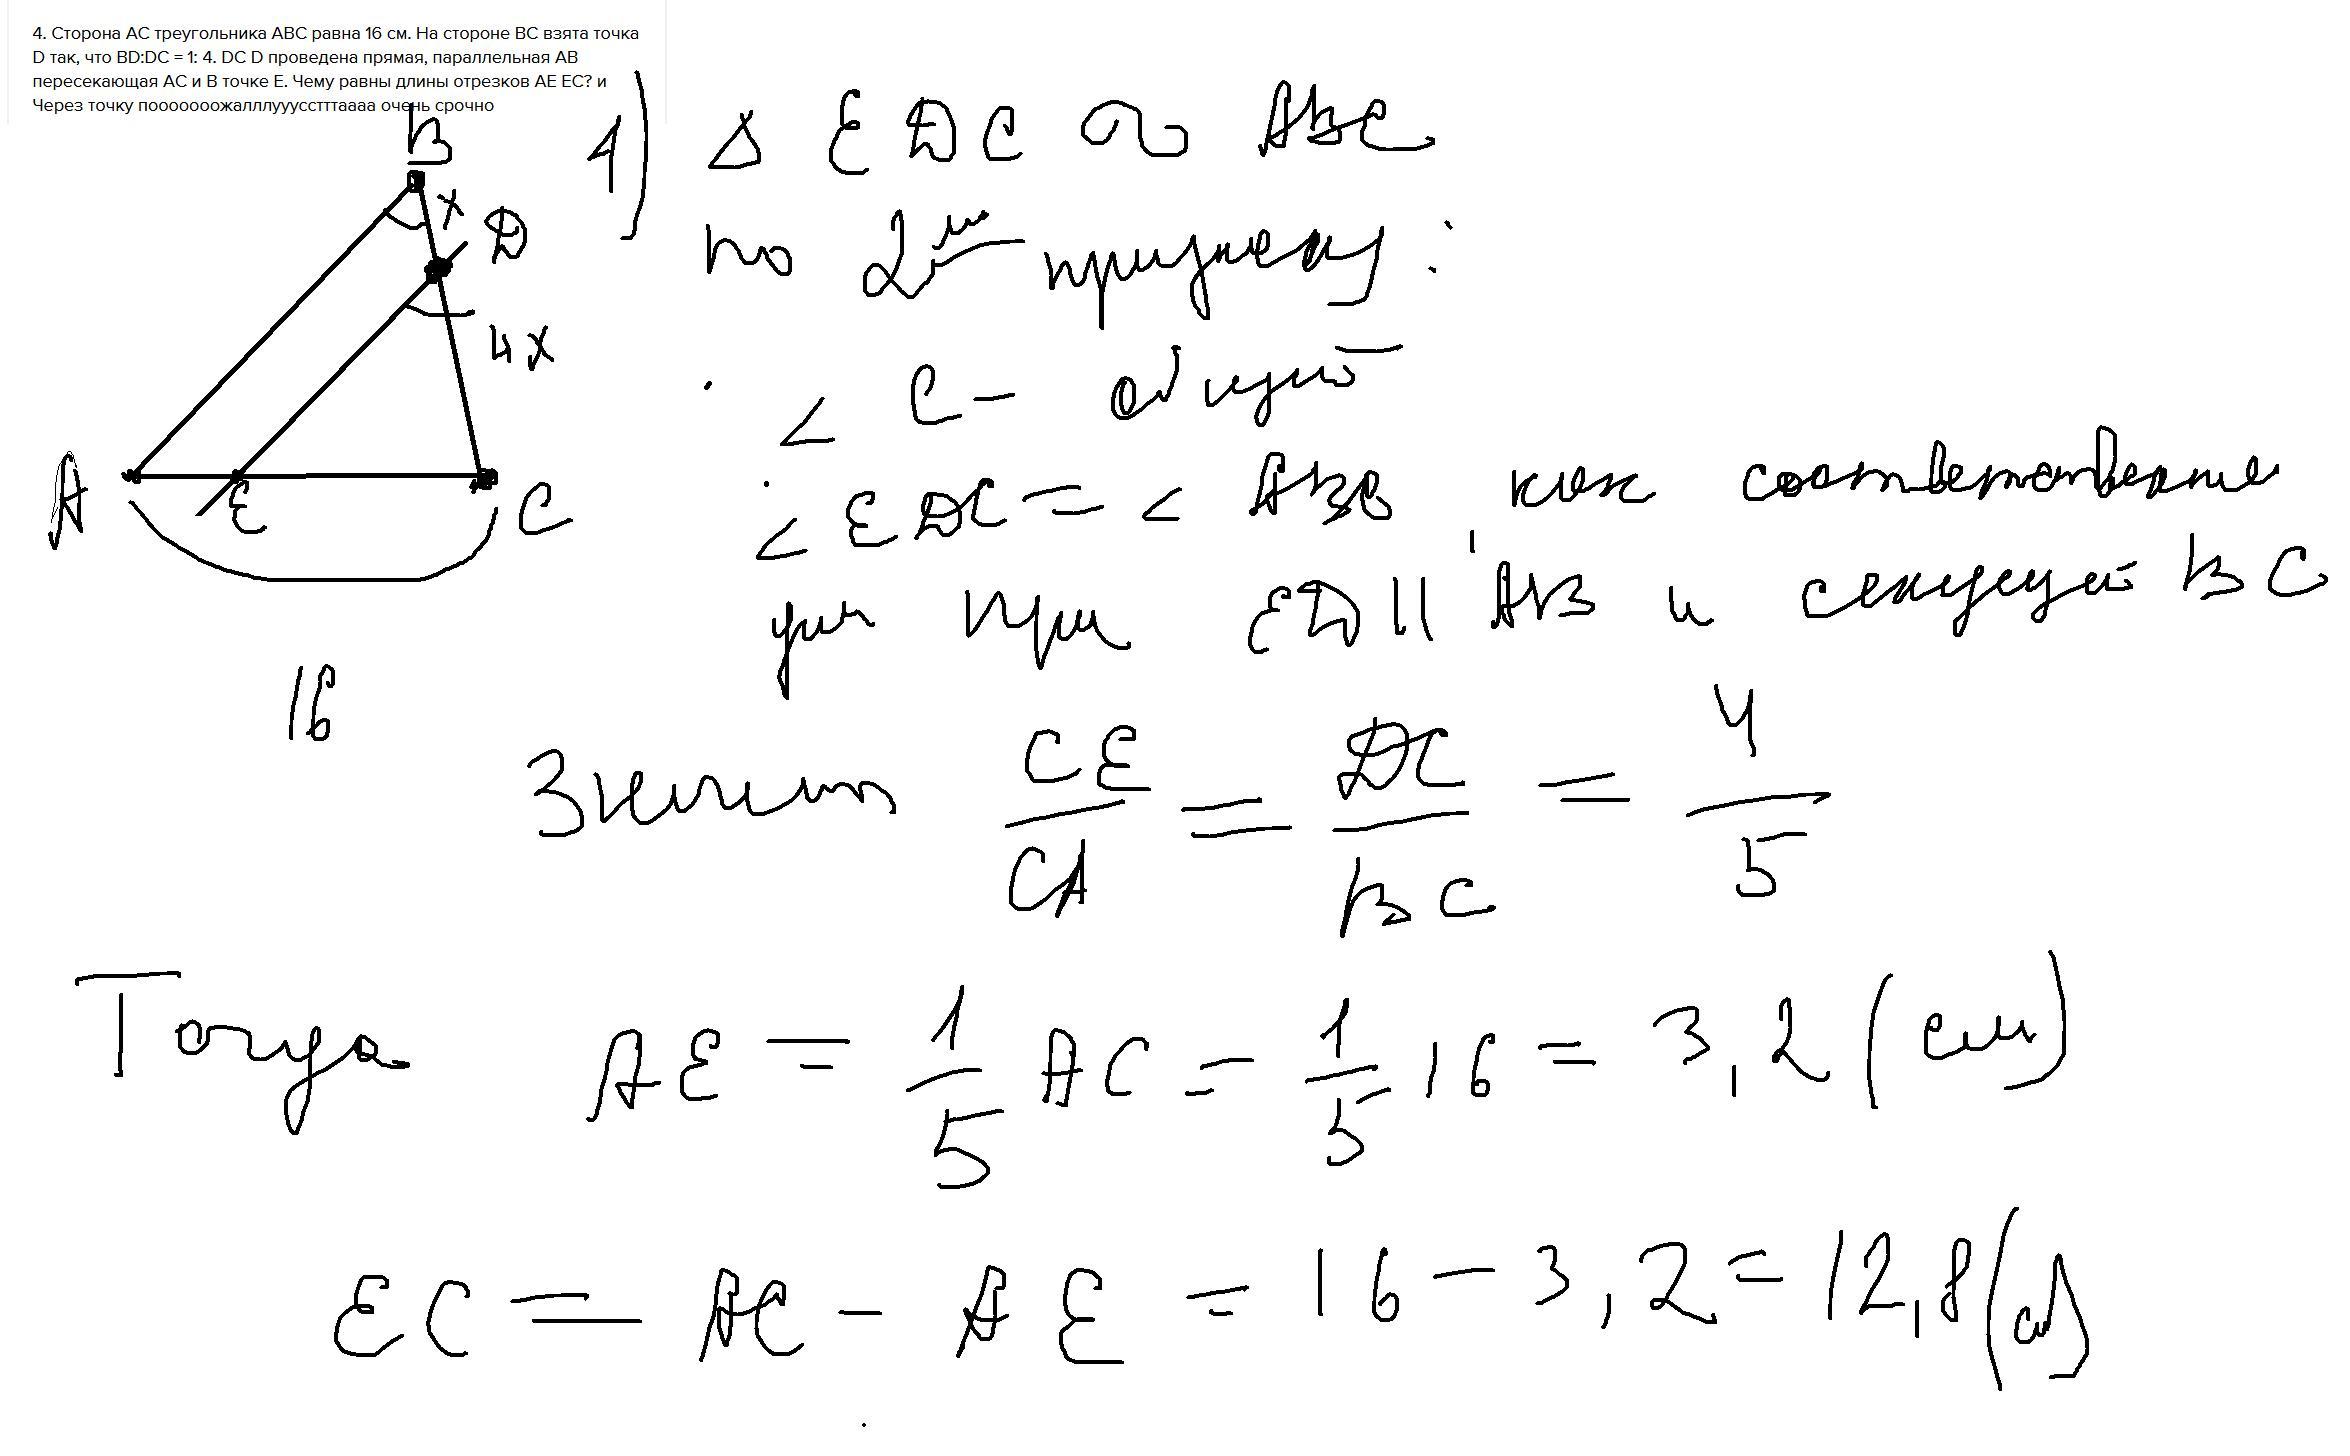 4. Сторона АС треугольника АВС равна 16 см. На стороне ВС взята точка
D так, что BD:DC = 1: 4. DC D проведена прямая, параллельная АВ
пересекающая АС и В точке Е. Чему равны длины отрезков АЕ ЕС? и
Через точку пооооооожалллууусстттаааа очень срочно
B
x
D
4x
A
E
C
16
1) Δ EDC ∾ ABC
по 2м признакам:
∠ C - общий
∠ EDC = ∠ ABC, как соответственные
углы при ED || AB и секущей BC
Значит CE/CA = DC/BC = 4/5
Тогда AE = 1/5 AC = 1/5 16 = 3,2 (см)
EC = AC - AE = 16 - 3,2 = 12,8 (см)